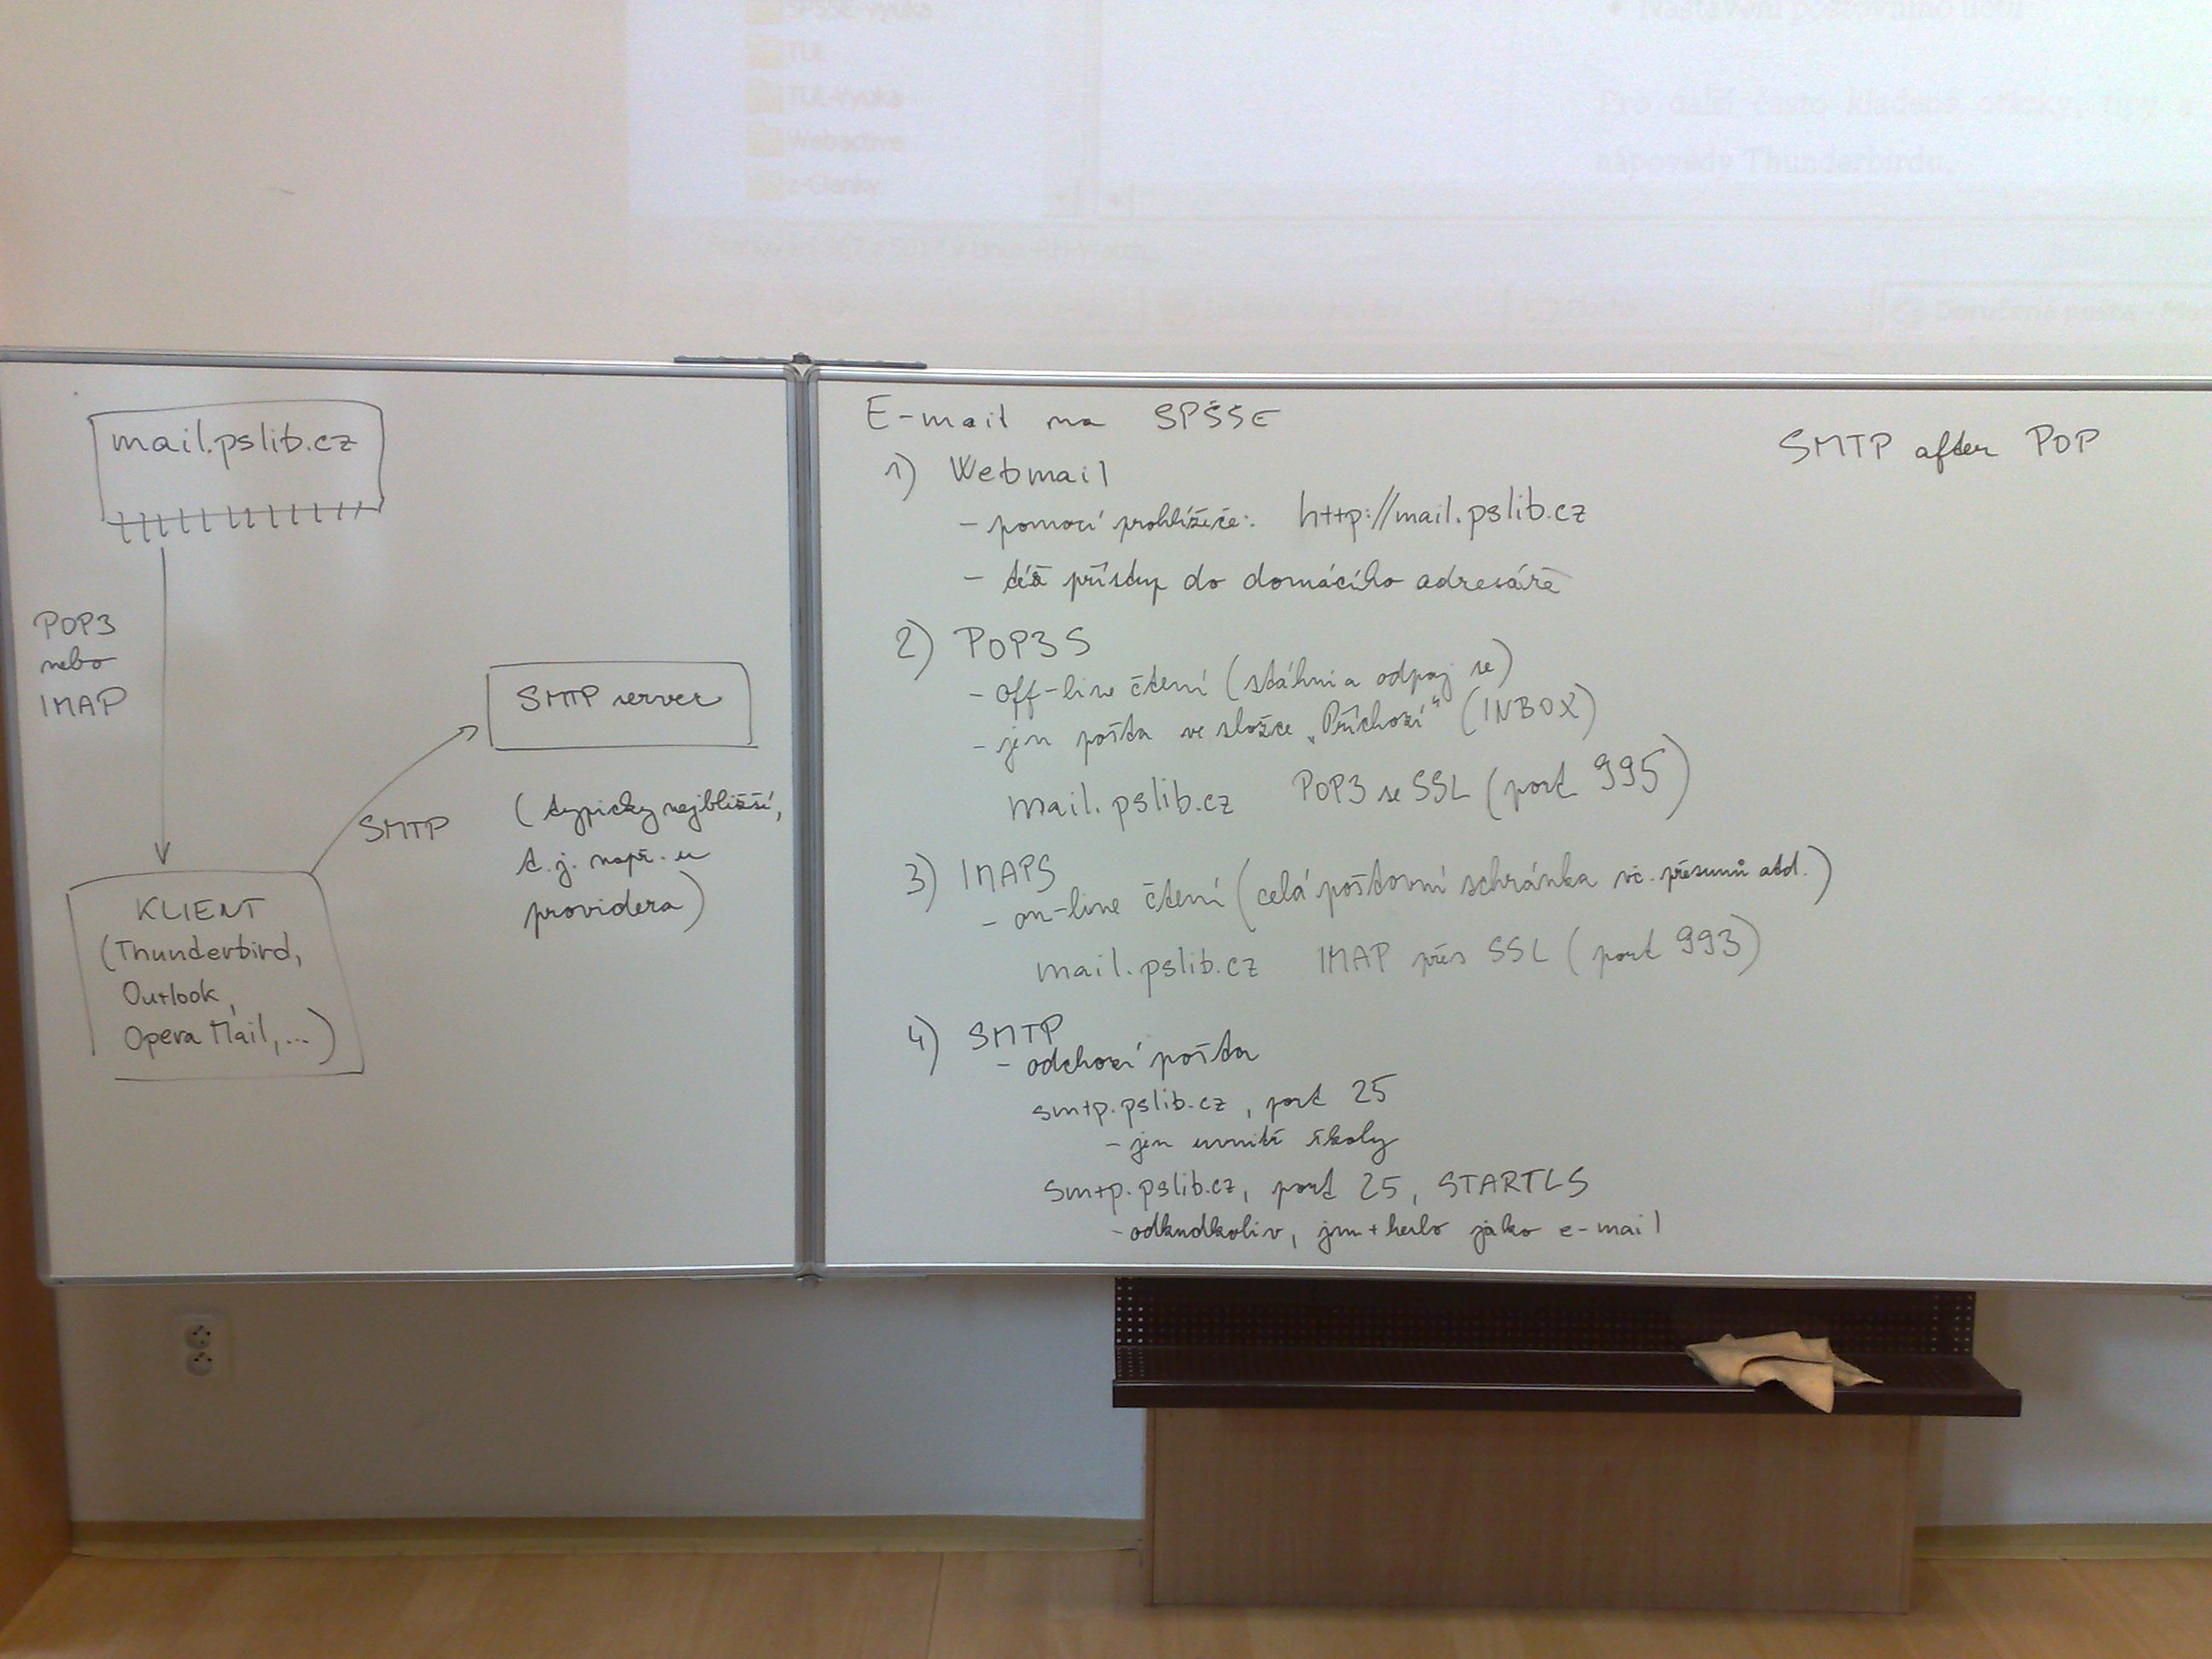 SPŠSE-vyuka
TUL
TUL-Vyuka
Webactive
z-Clanky
Nastavení poštovního účtu
Pro další často kladené otázky, tipy a
nápovědy Thunderbirdu.
Doručená pošta -
mail.pslib.cz
POP3
nebo
IMAP
SMTP server
SMTP
(typicky nejbližší,
t.j. např. u
providera)
KLIENT
(Thunderbird,
Outlook,
Opera Mail, ...)
E-mail na SPŠSE
1) Webmail
- pomocí prohlížeče: http://mail.pslib.cz
- též přístup do domácího adresáře
2) POP3S
- off-line čtení (stáhni a odpoj se)
- jen pošta ve složce „Příchozí“ (INBOX)
mail.pslib.cz POP3 se SSL (port 995)
3) IMAPS
- on-line čtení (celá poštovní schránka vč. přesunů atd.)
mail.pslib.cz IMAP přes SSL (port 993)
4) SMTP
- odchozí pošta
smtp.pslib.cz, port 25
- jen uvnitř školy
smtp.pslib.cz, port 25, STARTLS
- odkudkoliv, jm+heslo jako e-mail
SMTP after POP